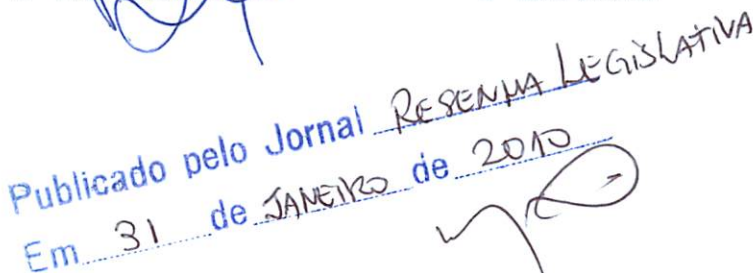 Publicado pelo Jornal RESENHA LEGISLATIVA
Em 31 de JANEIRO de 2010